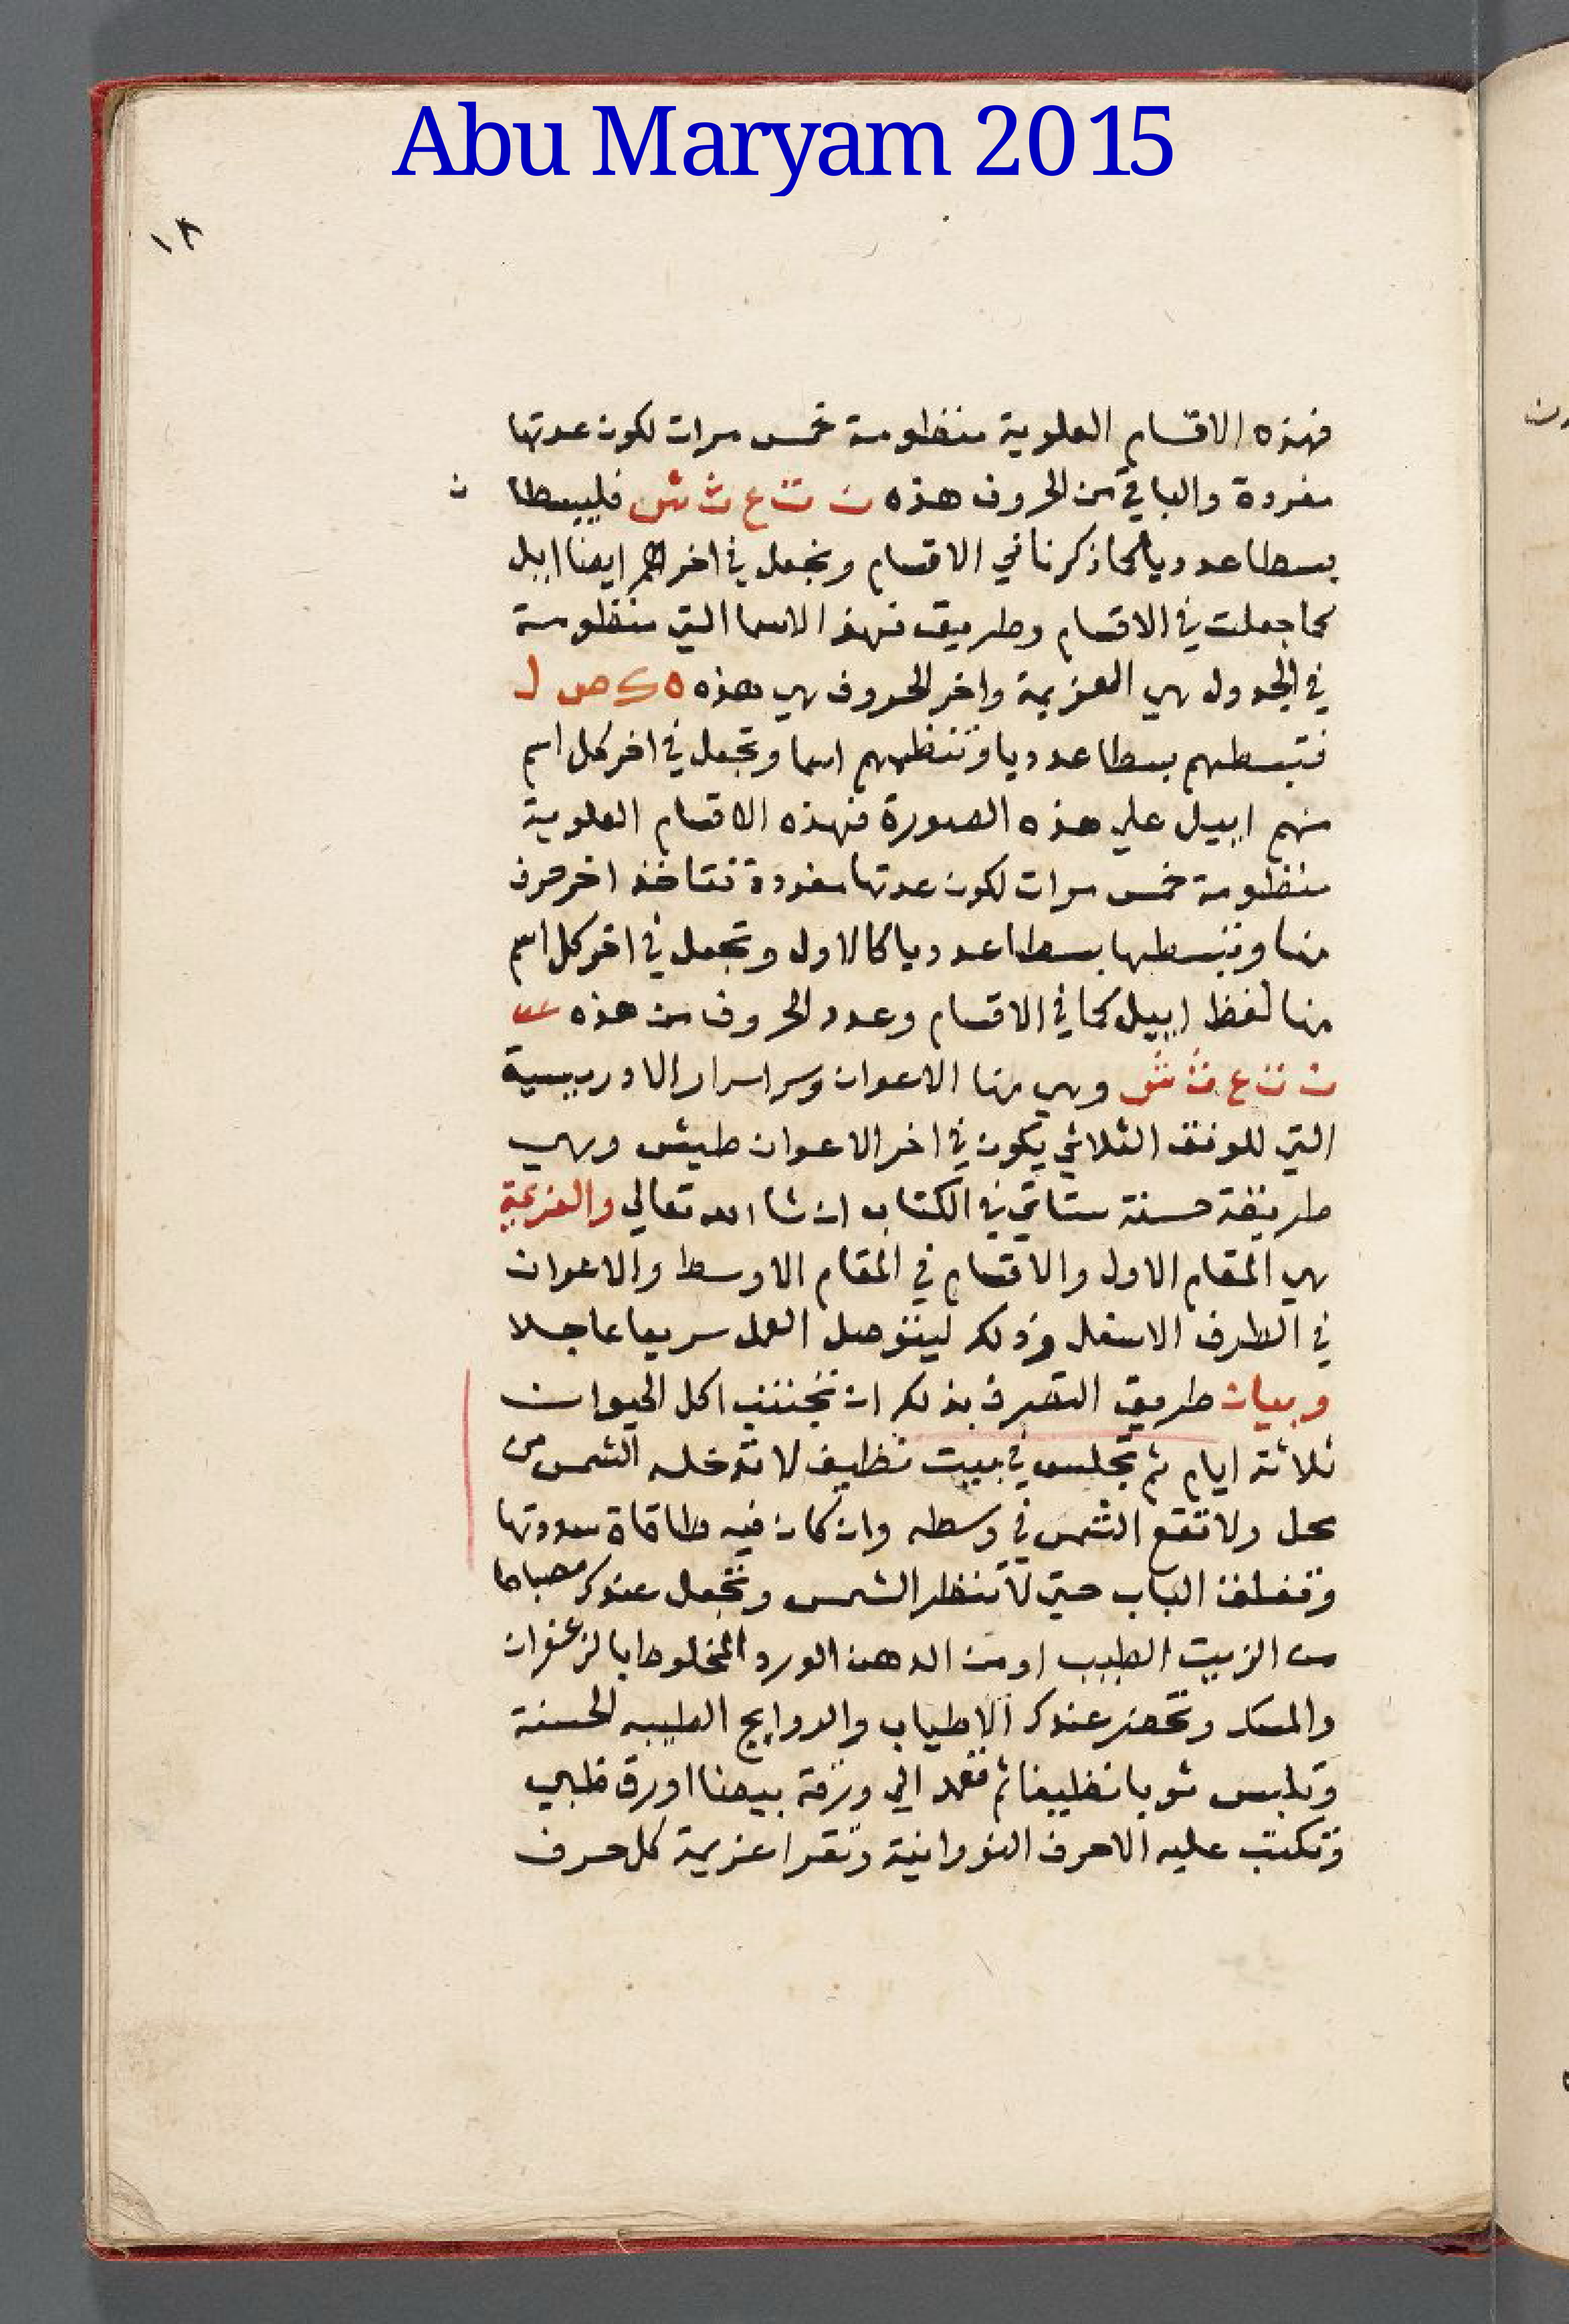 Abu Maryam 2015
١٨
فهذه الاقسام العلوية منظومة خمس مرات لكون عدتها
مفردة والباقي من الحروف هذه ت ث ع ث ش فليبسطا
بسطا عدديا كما ذكرنا في الاقسام ونجعل في اخرهم ايضا اييل
كما جعلت في الاقسام وطريق فهذ الاسما التي منظومة
في الجدول هي العزيمة واخر الحروف هي هذه ه ك ص ل
فتبسطهم بسطا عدديا وتنظمهم اسما وتجعل في اخر كل اسم
منهم اييل علي هذه الصورة فهذه الاقسام العلوية
منظومة خمس مرات لكون عدتها مفردة فتاخذ اخر حرف
منها وتبسطها بسطا عدديا كالاول وتجعل في اخر كل اسم
منها لفظ اييل كما في الاقسام وعدد الحروف من هذه
ت ث ع ث ش وهي منها الاعوان وسر اسرار الادريسية
التي للوفق الثلاثي يكون في اخر الاعوان طيش وهي
طريقة حسنة ستاتي في الكتاب ان شا الله تعالي والعزيمة
هي المقام الاول والاقسام في المقام الاوسط والاعوان
في الطرف الاسفل وذلك ليتوصل العمل سريعا عاجلا
وبيان طريق التصرف بذلك ان تجتنب اكل الحيوان
ثلاثة ايام ثم تجلس في بيت نظيف لا تدخله الشمس من
محل ولا تقع الشمس في وسطه وان كان فيه طاقاة سددتها
وتغلق الباب حتي لا تنظر الشمس وتجعل عندك مصباحا
من الزيت الطيب او من الدهن الورد المخلوط بالزعفران
والمسك وتحضر عندك الاطياب والروايح الطيبه الحسنة
وتلبس ثوبا نظيفا ثم تعمد الي ورقة بيضا اورق ظبي
وتكتب عليه الاحرف النورانية وتقرا عزيمة كل حرف